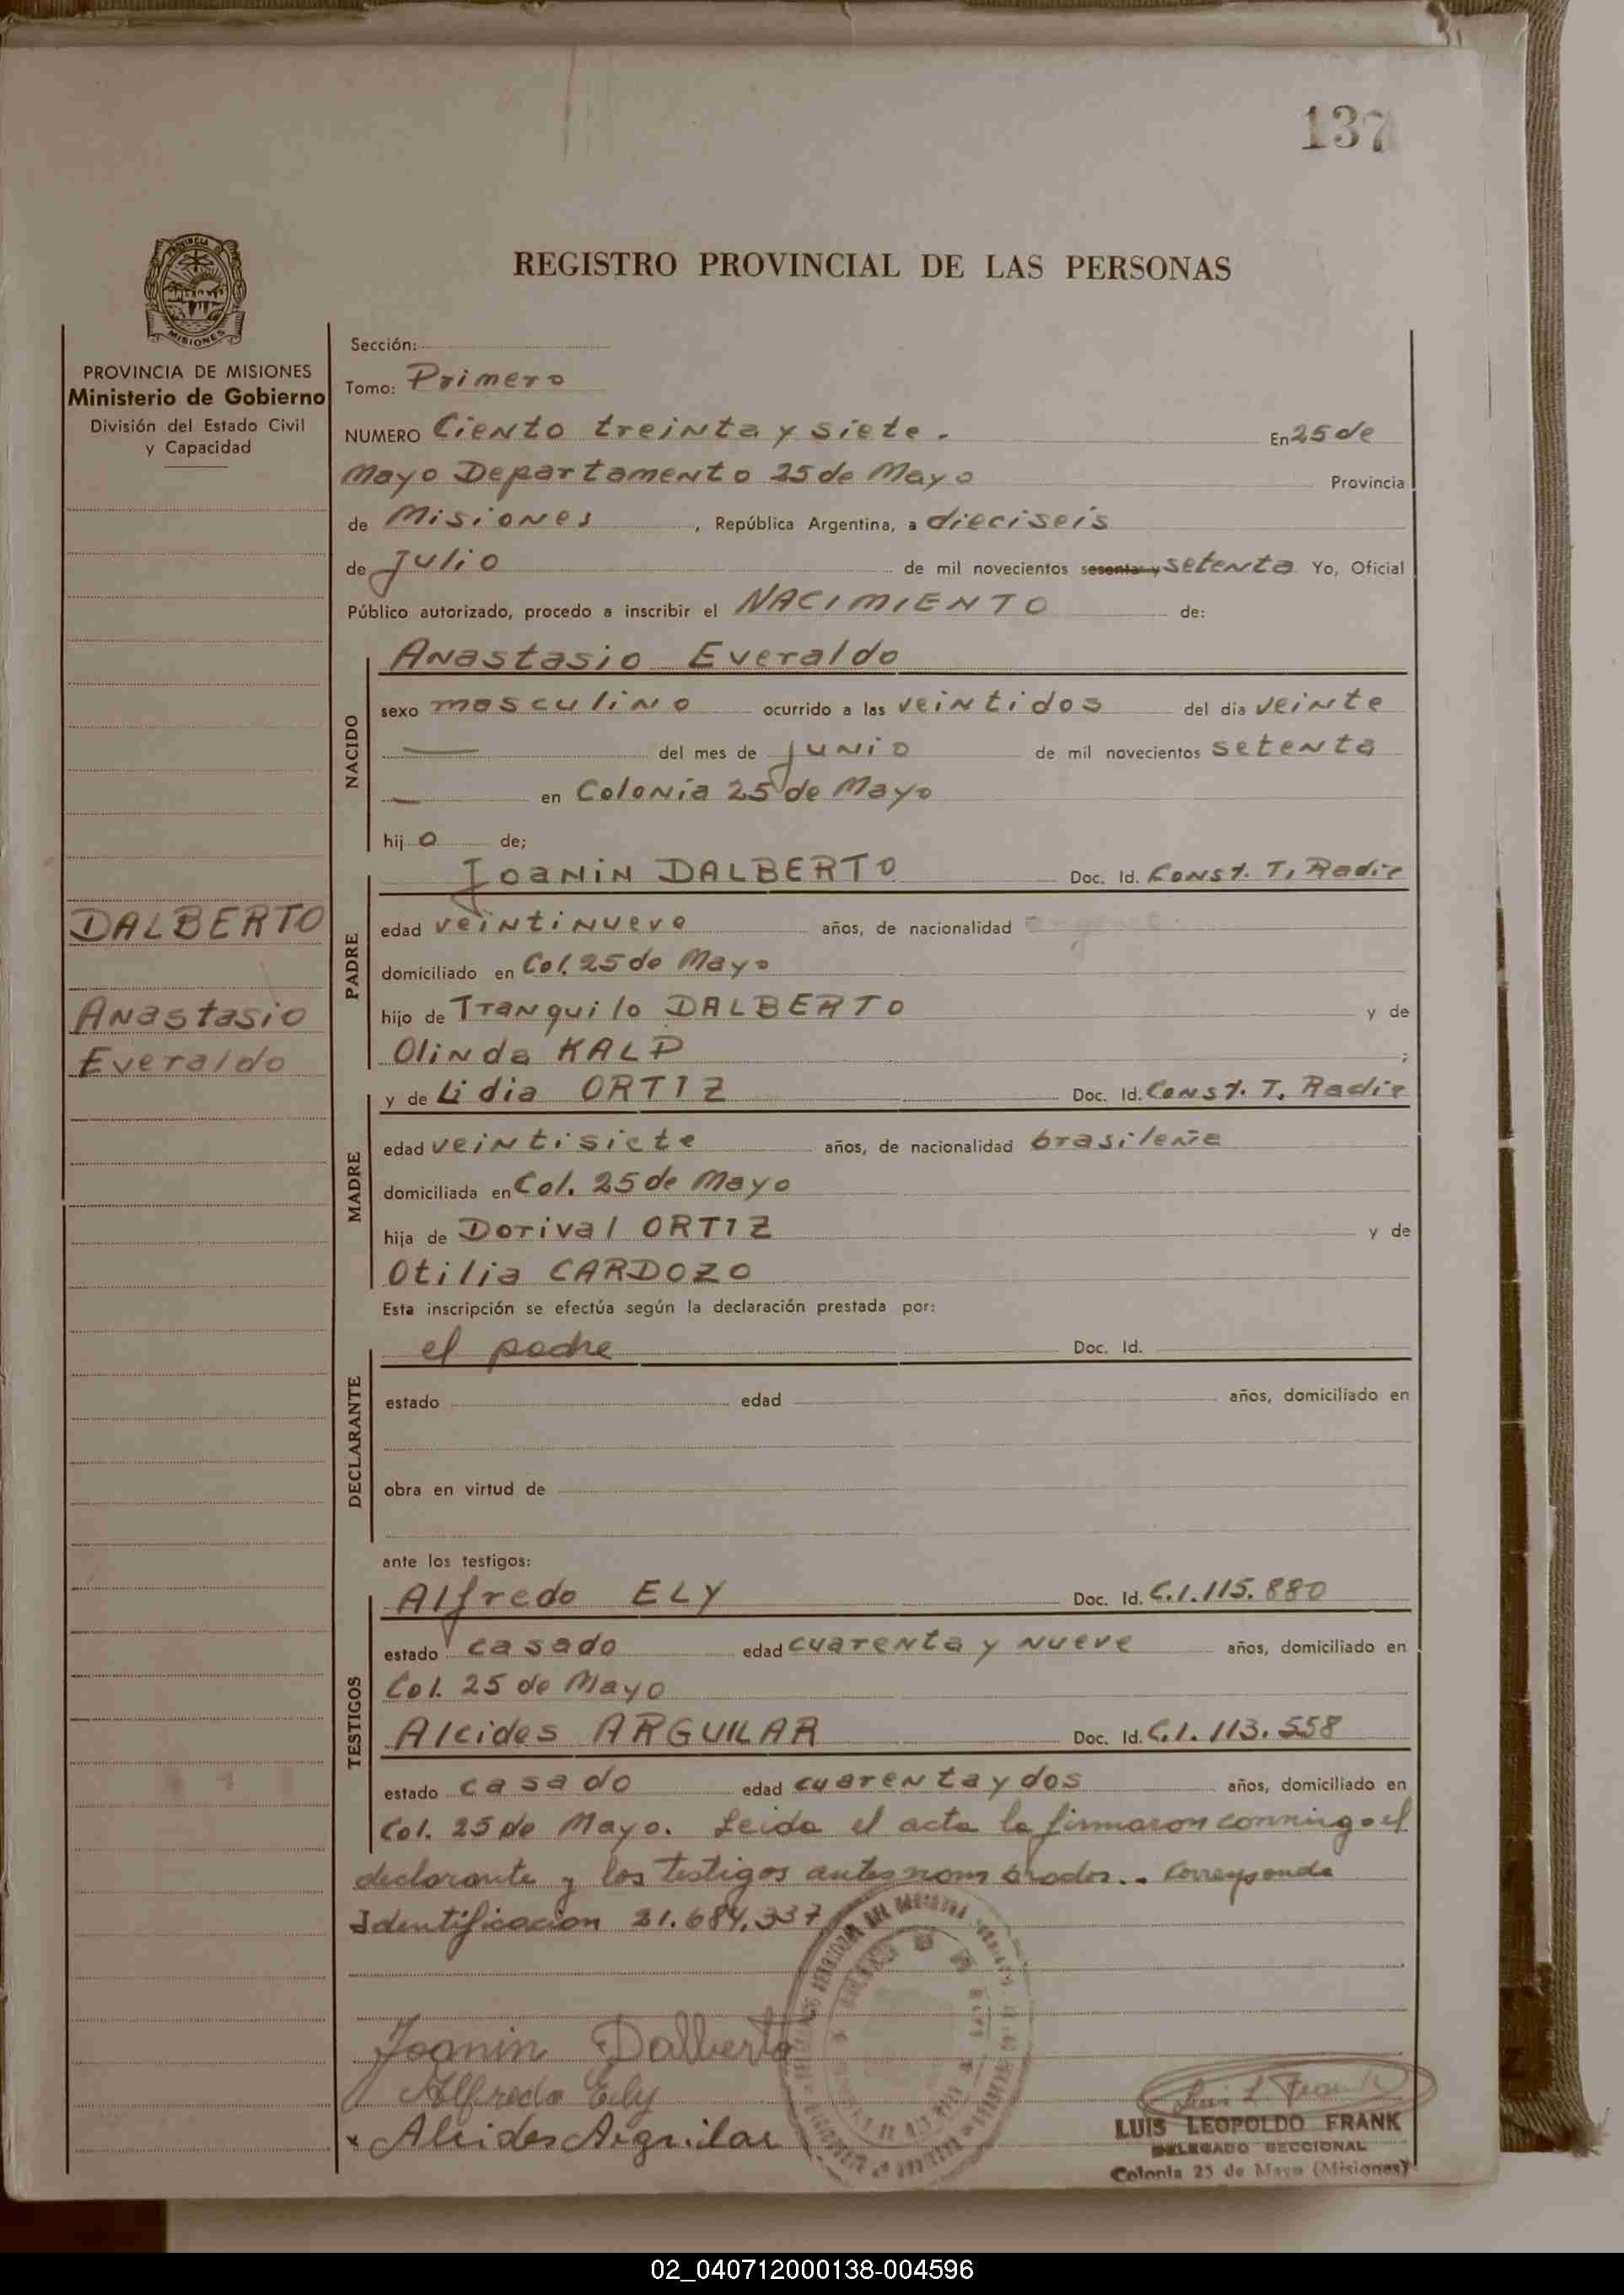 137
PROVINCIA DE MISIONES
REGISTRO PROVINCIAL DE LAS PERSONAS
PROVINCIA DE MISIONES
Ministerio de Gobierno
División del Estado Civil
y Capacidad
DALBERTO
Anastasio
Everaldo
Sección:
Tomo: Primero
NUMERO Ciento treinta y siete. En 25 de
Mayo Departamento 25 de Mayo Provincia
de Misiones, República Argentina, a dieciseis
de Julio de mil novecientos sesenta y setenta Yo, Oficial
Público autorizado, procedo a inscribir el NACIMIENTO de:
NACIDO
Anastasio Everaldo
sexo masculino ocurrido a las veintidos del dia veinte
del mes de junio de mil novecientos setenta
en Colonia 25 de Mayo
hijo de;
PADRE
Joanin DALBERTO Doc. Id. Const. T. Radic
edad veintinueve años, de nacionalidad
domiciliado en Col. 25 de Mayo
hijo de Tranquilo DALBERTO y de
Olinda KALP ;
MADRE
y de Lidia ORTIZ Doc. Id. Const. T. Radic
edad veintisiete años, de nacionalidad brasileña
domiciliada en Col. 25 de Mayo
hija de Dorival ORTIZ y de
Otilia CARDOZO
Esta inscripción se efectúa según la declaración prestada por:
DECLARANTE
el padre Doc. Id.
estado edad años, domiciliado en
obra en virtud de
ante los testigos:
TESTIGOS
Alfredo ELY Doc. Id. C.I. 115.880
estado casado edad cuarenta y nueve años, domiciliado en
Col. 25 de Mayo
Alcides ARGUILAR Doc. Id. C.I. 113.558
estado casado edad cuarenta y dos años, domiciliado en
Col. 25 de Mayo. Leida el acta la firmaron conmigo el
declarante y los testigos antes nombrados.. Corresponde
Identificacion 21.684.337
Joanin Dalberto
Alfredo Ely
x Alcides Arguilar
Luis L Frank
LUIS LEOPOLDO FRANK
DELEGADO SECCIONAL
Colonia 25 de Mayo (Misiones)
02_040712000138-004596